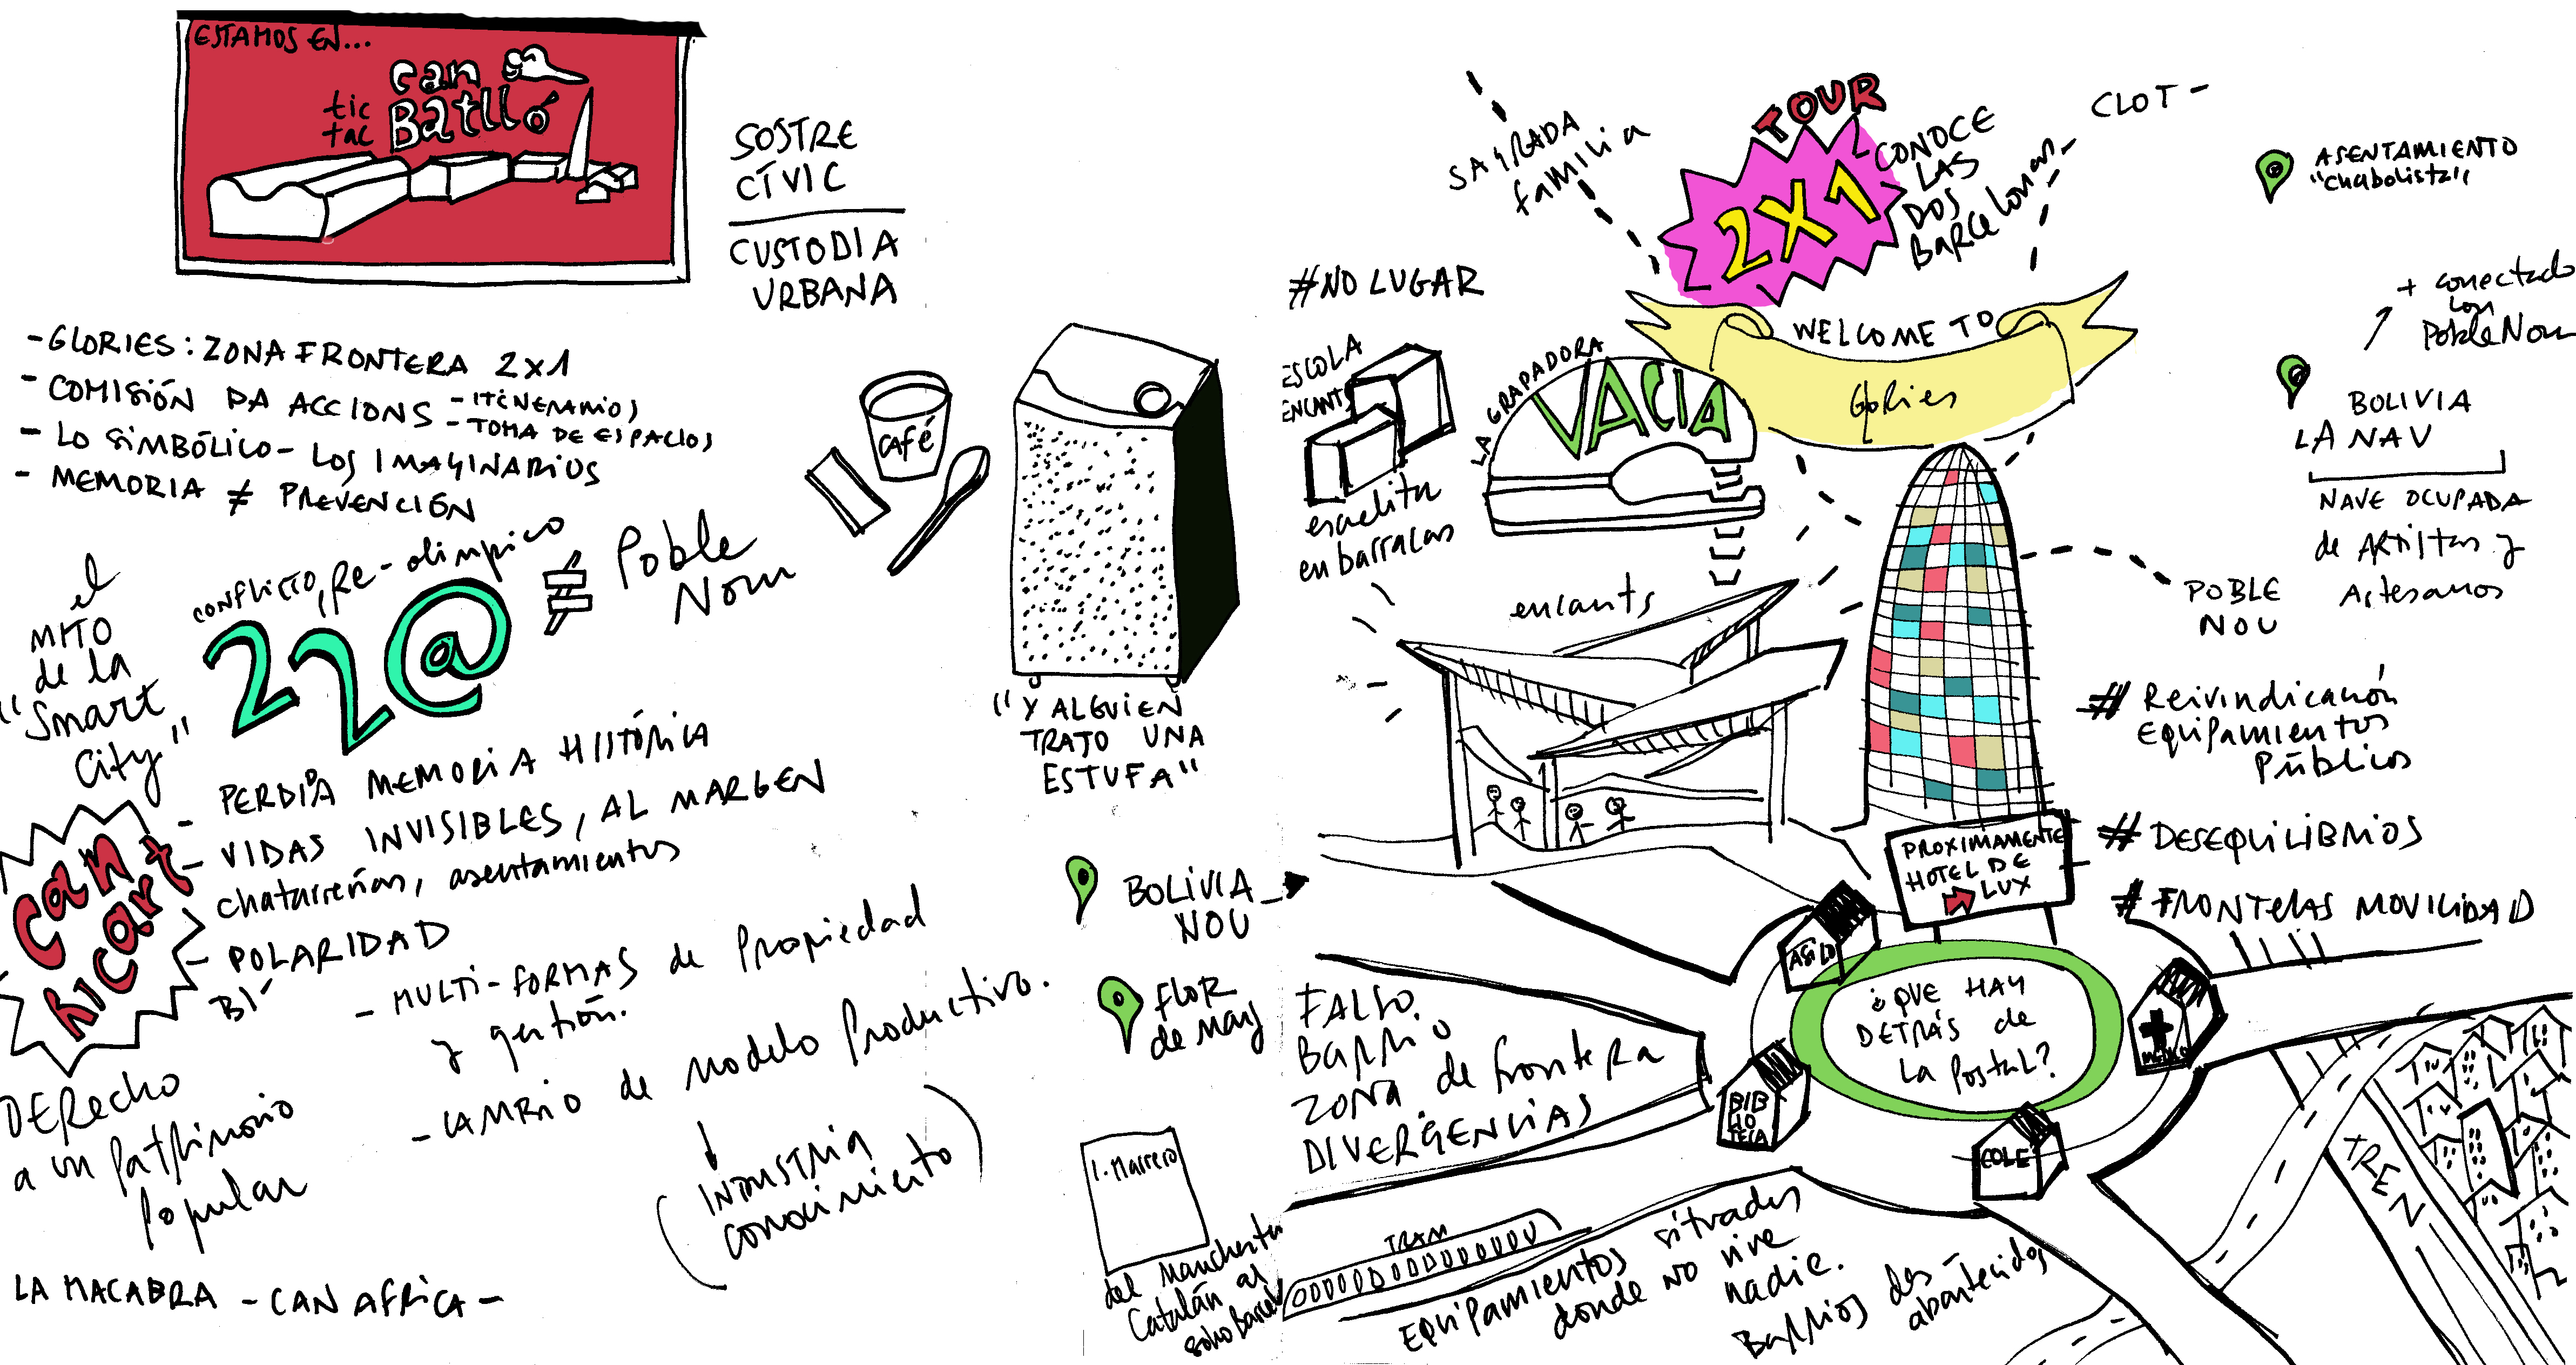 ESTAMOS EN...
can
tic
tac
Batlló
SOSTRE
CÍVIC
CUSTODIA
URBANA
- GLORIES: ZONA FRONTERA 2x1
- COMISIÓN DA ACCIONS - ITINERARIOS
- TOMA DE ESPACIOS
- LO SIMBÓLICO - LOS IMAGINARIOS
- MEMORIA ≠ PREVENCIÓN
CAFÉ
el
MITO
de la
"Smart
City"
CONFLICTO, Pre-olimpico
22@ ≠ Poble
Nou
"Y ALGUIEN
TRAJO UNA
ESTUFA"
can
Ricart
- PERDIDA MEMORIA HISTÓRICA
- VIDAS INVISIBLES, AL MARGEN
chatarreros, asentamientos
- POLARIDAD
BI
- MULTI-FORMAS de Propiedad
y gestión.
- CAMBIO de Modelo Productivo.
INDUSTRIA
conocimiento
DERECHO
a un Patrimonio
Popular
LA MACABRA - CAN AFRICA -
BOLIVIA
NOU
FLOR
de MAY
I. Marrero
del Manchester
Catalán al
soho Barcel
SAGRADA
Familia
TOUR
2X1
CONOCE
LAS
DOS
Barcelonas
CLOT -
ASENTAMIENTO
"Chabolista"
+ conectado
con
Poble Nou
BOLIVIA
LA NAU
NAVE OCUPADA
de ARTISTAS y
Artesanos
#NO LUGAR
ESCOLA
ENCANTS
escuelita
en barracas
LA GRAPADORA
VACIA
WELCOME TO
Glories
encants
POBLE
NOU
# Reivindicación
Equipamientos
Públicos
# DESEQUILIBRIOS
# FRONTERAS MOVILIDAD
PROXIMAMENTE
HOTEL DE
LUX
ASILO
¿QUE HAY
DETRÁS de
LA Postal?
BIB
LIO
TECA
COLE
FALSO
BARRIO
ZONA de frontera
DIVERGENCIAS
TRAM
TREN
EQUIPAMIENTOS situados
donde NO vive
nadie.
Barrios des-
abastecidos